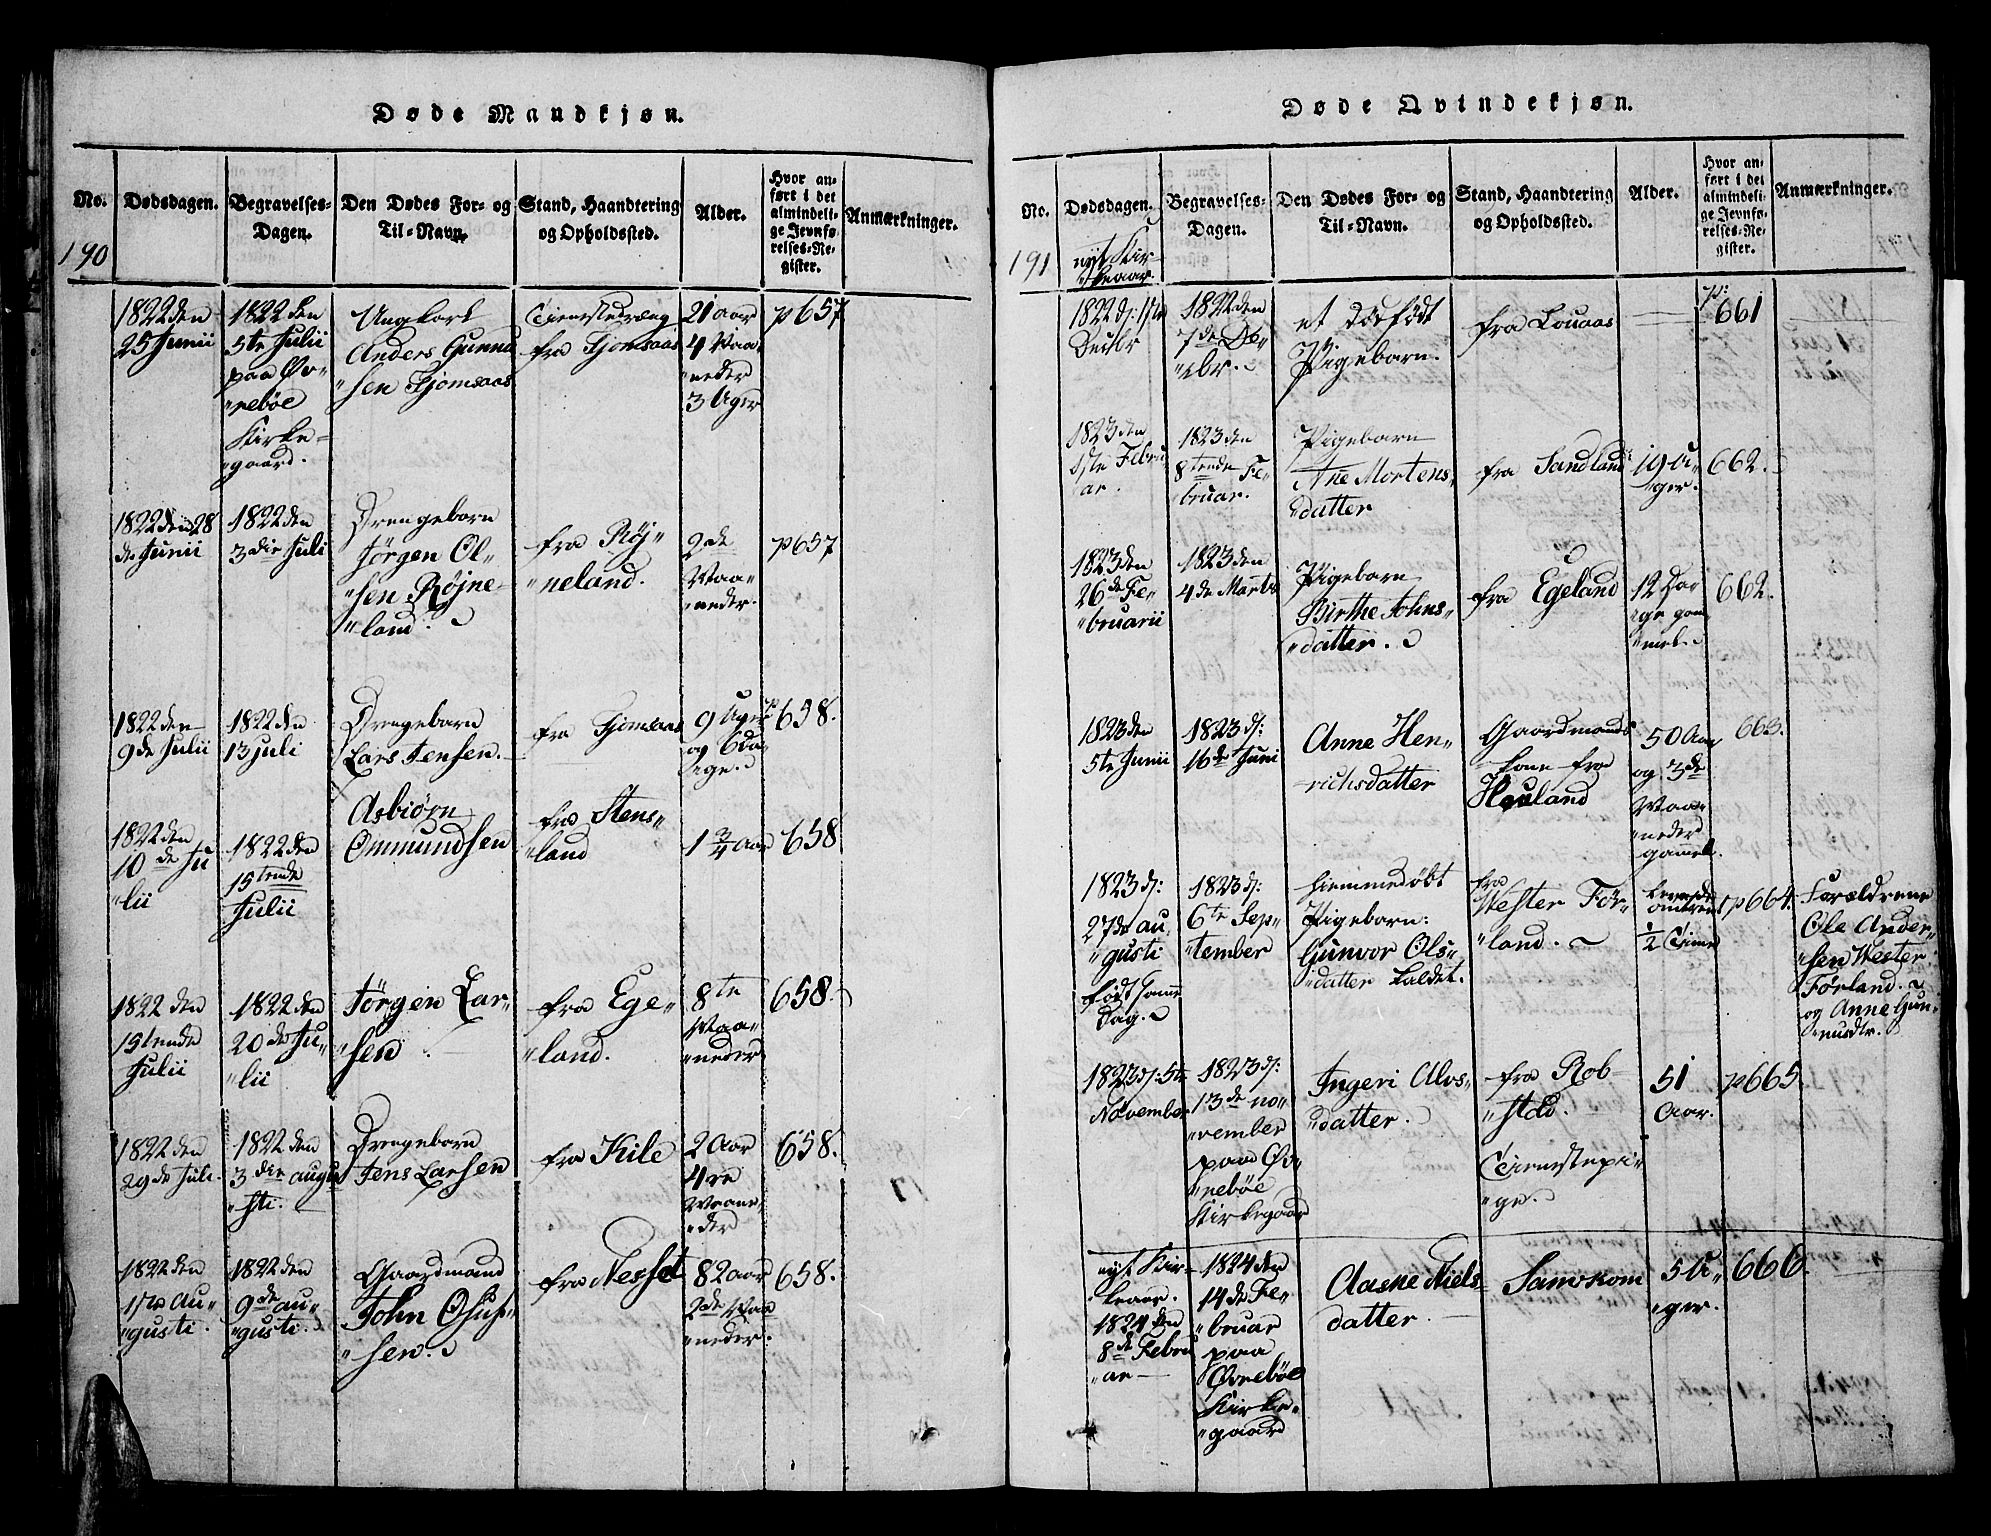 Døde Mandkjøn.
No.
Dødsdagen.
Begravelses-
Dagen.
Den Dødes For- og
Til-Navn.
Stand, Haandtering
og Opholdssted.
Alder.
Hvor an-
ført i det
almindeli-
ge Jevnfø-
relses-Re-
gister.
Anmærkninger.
190
1822 den
25 Junii
1822 den
5te Julii
paa Øv-
"rebøe
Kirke-
"gaard.
Ungkarl
Anders Gunnu
"sen Fjomsaas
Tienestedreng
fra Fjomsaas
21 Aar
4 Maa-
"neder
3 Uger
p657
1822 den 28
de Junii
1822 den
3die Juli
Drengebarn
Jørgen Ol-
"sen Røjne-
"land.
fra Røj-
"neland.
2de
Maa-
"neder.
p657
1822 den
9de Julii
1822 den
13 juli
Drengebarn
Lars Jensen.
fra Fjomsaas
9 Uger
og 6 da-
"ge.
p 658.
1822 den
10de Ju
"lii
1822 den
15tende
Julii
Asbiørn
Ommundsen
fra Stens-
"land
1 3/4 Aar
658
1822 den
15tende
Julii
1822 den
20de Ju-
"lii
Jørgen Lar-
"sen
fra Ege-
"land.
8te
Maa-
"neder
658.
1822 den
29de Juli.
1822 den
3die augu
"sti.
Drengebarn
Jens Larsen
fra Kile
2 Aar
4re
Maane-
"der
658.
1822 den
1ste Au-
"gusti.
1822 den
9de au-
"gusti.
Gaardmand
John Osuf-
"sen.
fra Nesset
82 aar
2de Maa
"neder.
658.
Døde Qvindekjøn.
No.
Dødsdagen.
Begravelses-
Dagen.
Den Dødes For- og
Til-Navn.
Stand, Haandtering
og Opholdssted.
Alder.
Hvor an-
ført i det
almindeli-
ge Jevnfø-
relses-Re-
gister.
Anmærkninger.
191
nyt Kir-
"keaar.
1822 d: 1ste
Decbr
1822 den
7de De-
"cbr.
et dødfødt
Pigebarn.
fra Louaas
p:
661
1823 den
1ste Febru
"ar.
1823 den
8tende Fe-
"bruar.
Pigebarn
Ane Mortens-
"datter
fra Sandland
19 U-
"ger.
662.
1823 den
26de Fe-
"bruarii
1823 den
4de Marts
Pigebarn
Birthe Johns-
"datter.
fra Egeland
12 Da-
"ge gam
"mel.
662.
1823 den
5te Junii
1823 d:
16de Juni
Anne Hen-
richsdatter
Gaardmands
kone fra
Houland
50 Aar
og 3de
Maa-
"neder
gammel.
663.
1823 d:
27de au-
"gusti
født samme
Dag.
1823 d:
6te Sep-
"tember
Hiemmedøbt
Pigebarn:
Gunvor Ols-
"datter kaldet.
fra
Wester Før-
"land.
levede
omtrent
1/2 Time
p664.
Forældrene
Ole Ander-
"sen Wester
Førland.
og Anne Gun-
"nusdtr.
1823 d: 5te
November
1823 d:
13de no-
"vember
paa Øv-
"rebøe
Kirkegaard
Ingeri Alvs-
"datter.
fra Rob-
"stad.
Tienestepi-
"ge.
51
Aar.
p665.
nyt Kir-
"keaar.
1824 den
8de Febru
"ar
1824 den
14de Fe-
"bruar
paa
Øvrebøe
Kirke-
"gaard
Aasne Niels-
datter.
Samkom
5 U-
"ger.
666.